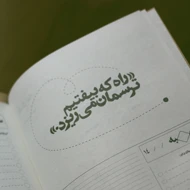 «راه که بیفتیم
ترسمان می‌ریزد.»